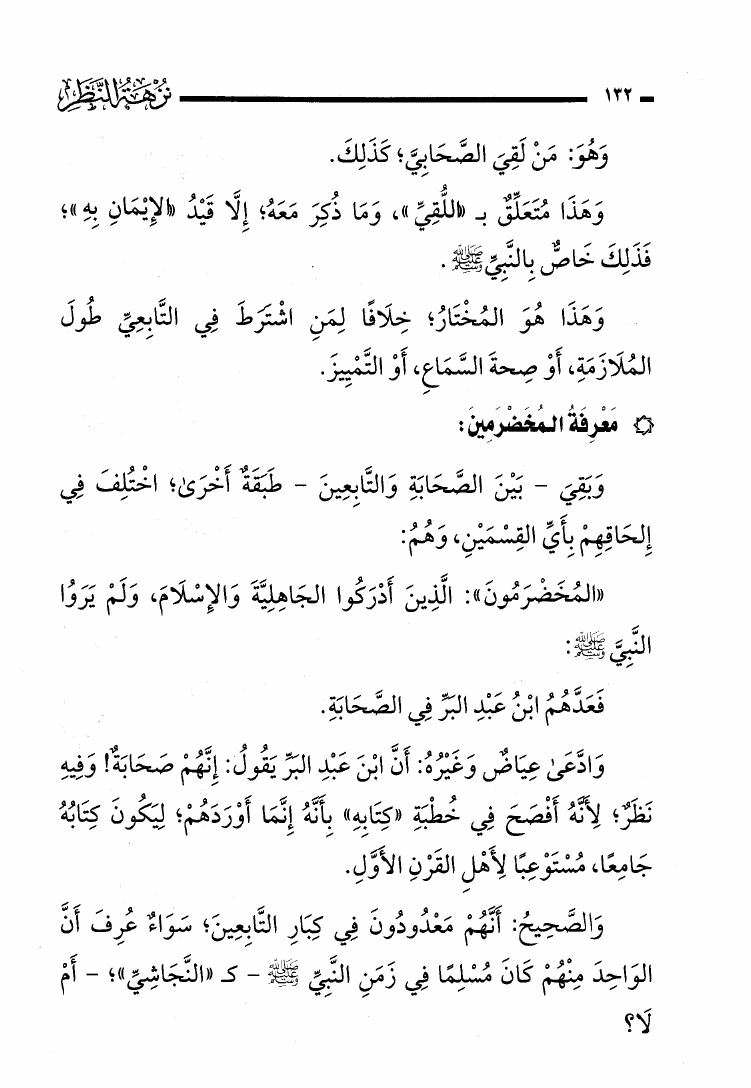 ـ ١٣٢ ـ نُزْهَةُ النَّظَرِ
وَهُوَ: مَنْ لَقِيَ الصَّحَابِيَّ؛ كَذَلِكَ.
وَهَذَا مُتَعَلِّقٌ بـ «اللُّقِيِّ»، وَمَا ذُكِرَ مَعَهُ؛ إِلَّا قَيْدُ «الإِيْمَانِ بِهِ»؛
فَذَلِكَ خَاصٌّ بِالنَّبِيِّ ﷺ.
وَهَذَا هُوَ المُخْتَارُ؛ خِلَافًا لِمَنِ اشْتَرَطَ فِي التَّابِعِيِّ طُولَ
المُلَازَمَةِ، أَوْ صِحةَ السَّمَاعِ، أَوْ التَّمْيِيزَ.
۞ مَعْرِفَةُ المُخَضْرَمِينَ:
وَبَقِيَ - بَيْنَ الصَّحَابَةِ وَالتَّابِعِينَ - طَبَقَةٌ أُخْرَىٰ؛ اخْتُلِفَ فِي
إِلحَاقِهِمْ بِأَيِّ القِسْمَيْنِ، وَهُمُ:
«المُخَضْرَمُونَ»: الَّذِينَ أَدْرَكُوا الجَاهِلِيَّةَ وَالإِسْلَامَ، وَلَمْ يَرَوُا
النَّبِيَّ ﷺ:
فَعَدَّهُمُ ابْنُ عَبْدِ البَرِّ فِي الصَّحَابَةِ.
وَادَّعَىٰ عِيَاضٌ وَغَيْرُهُ: أَنَّ ابْنَ عَبْدِ البَرِّ يَقُولُ: إِنَّهُمْ صَحَابَةٌ! وَفِيهِ
نَظَرٌ؛ لِأَنَّهُ أَفْصَحَ فِي خُطْبَةِ «كِتَابِهِ» بِأَنَّهُ إِنَّمَا أَوْرَدَهُمْ؛ لِيَكُونَ كِتَابُهُ
جَامِعًا، مُسْتَوْعِبًا لِأَهْلِ القَرْنِ الأَوَّلِ.
وَالصَّحِيحُ: أَنَّهُمْ مَعْدُودُونَ فِي كِبَارِ التَّابِعِينَ؛ سَوَاءٌ عُرِفَ أَنَّ
الوَاحِدَ مِنْهُمْ كَانَ مُسْلِمًا فِي زَمَنِ النَّبِيِّ ﷺ - كـ «النَّجَاشِيِّ»؛ - أَمْ
لَا؟